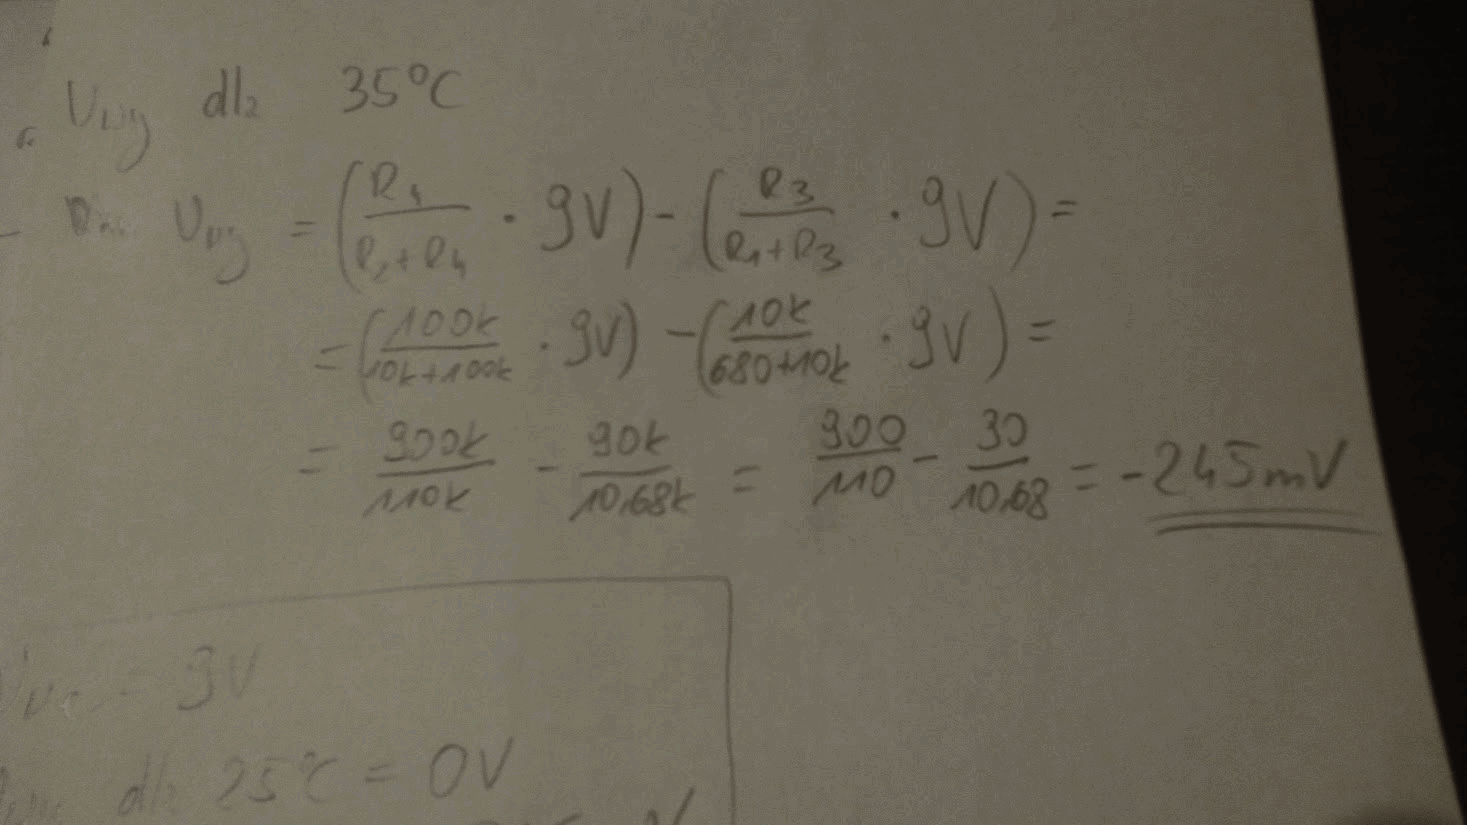 U_wy dla 35°C
U_wy = (R4/(R2+R4) · 9V) - (R3/(R1+R3) · 9V) =
= (100k/(10k+100k) · 9V) - (10k/(680+10k) · 9V) =
= 900k/110k - 90k/10,68k = 900/110 - 90/10,68 = -245mV
= 9V
dla 25°C = 0V